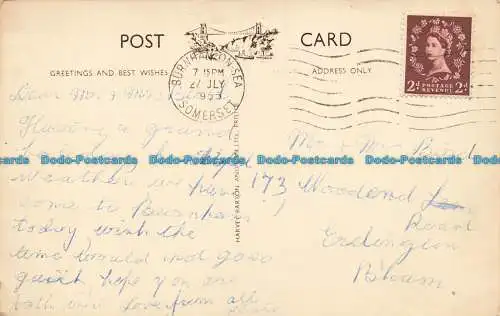 POST CARD
GREETINGS AND BEST WISHES
ADDRESS ONLY
BURNHAM-ON-SEA
7 15 PM
27 JLY
SOMERSET
POSTAGE REVENUE
2d 2d
HARVEY BARTON
Dear Mr & Mrs
Having a
weather we have
come to Burnham
today wish the
time would not go so
quick hope you are
both well love from all
Mr & Mrs
173 Woodend
Road
Erdington
B'ham.
Dodo-Postcards Dodo-Postcards Dodo-Postcards Dodo-Postcards
Dodo-Postcards Dodo-Postcards Dodo-Postcards Dodo-Postcards